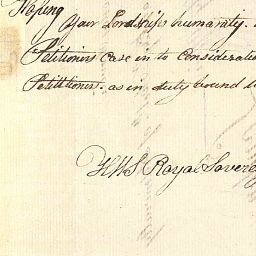 Hoping
Your Lordships humanity.
Petitioners Case in to Consideratio
Petitioners. as in duty bound
HMS Royal Sovere